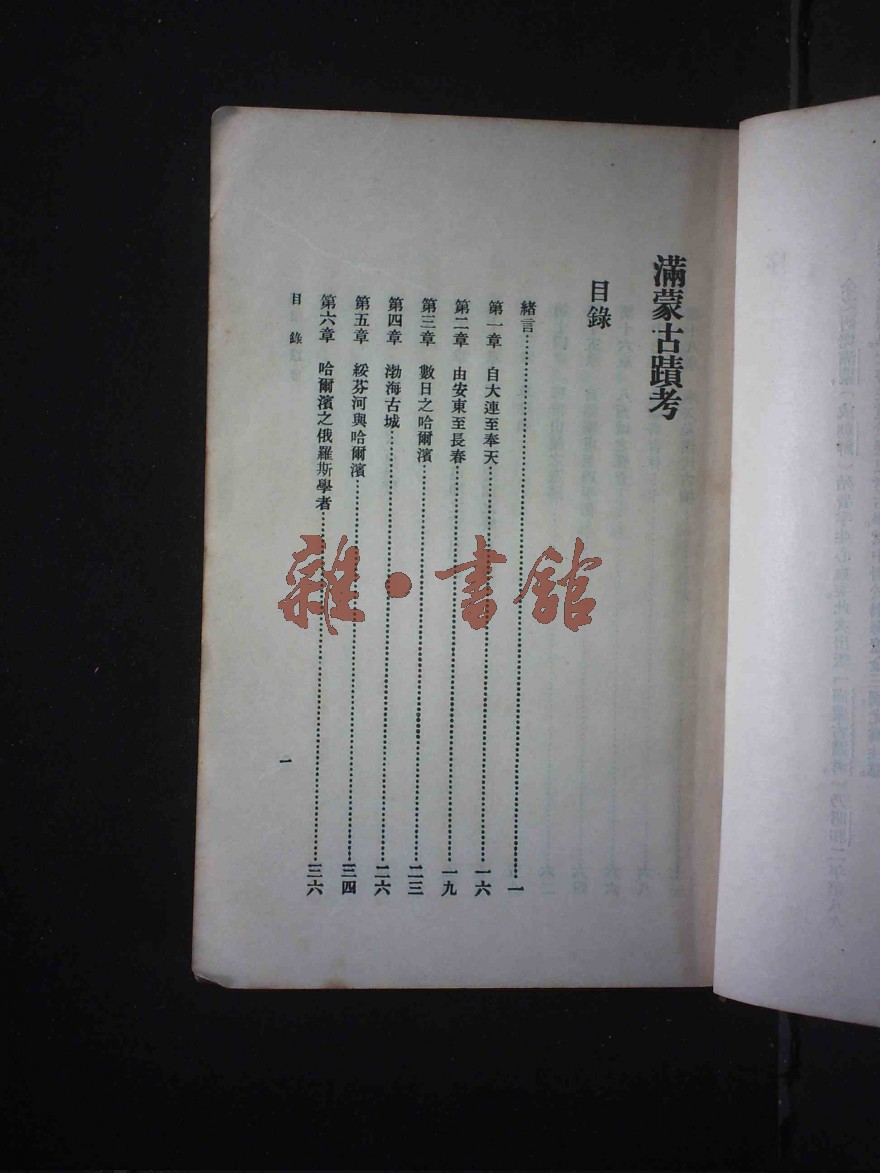 滿蒙古蹟考
目錄
緒言……一
第一章　自大連至奉天……一六
第二章　由安東至長春……一九
第三章　數日之哈爾濱……二三
第四章　渤海古城……二六
第五章　綏芬河與哈爾濱……三四
第六章　哈爾濱之俄羅斯學者……三六
目錄
一
雜·書館